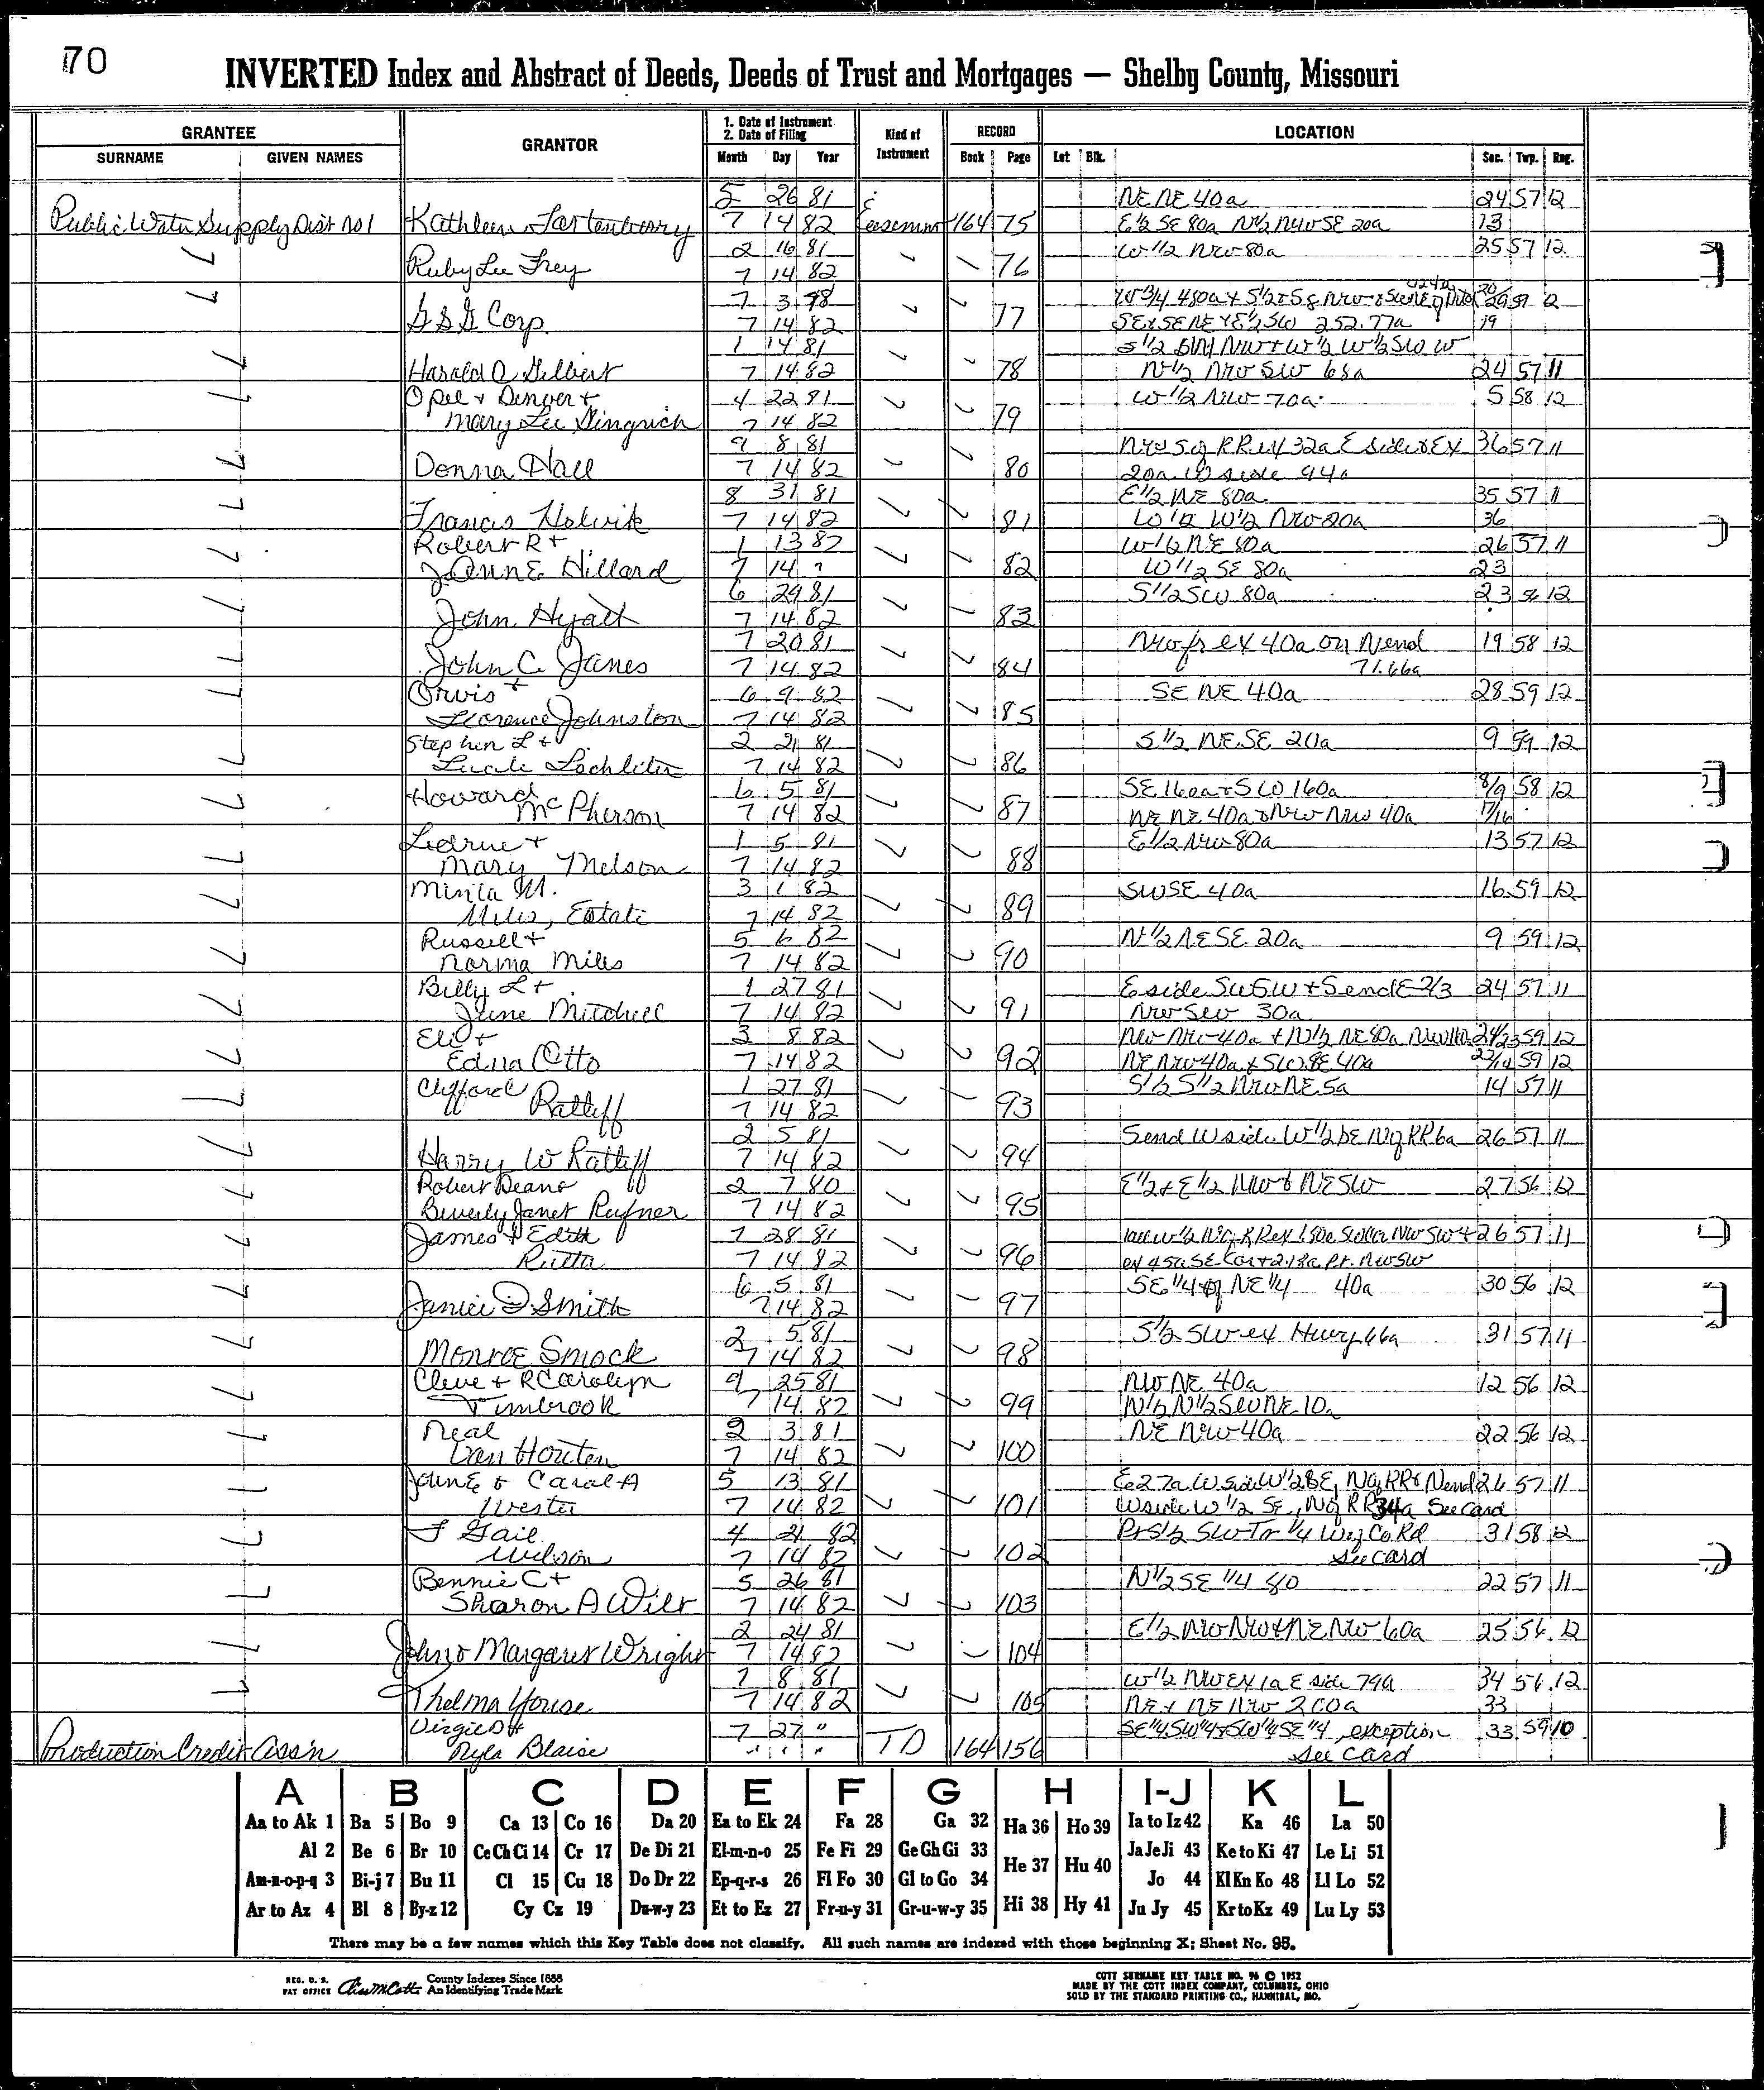 70
INVERTED Index and Abstract of Deeds, Deeds of Trust and Mortgages — Shelby County, Missouri
GRANTEE
SURNAME GIVEN NAMES
GRANTOR
1. Date of Instrument
2. Date of Filing
Month Day Year
Kind of Instrument
RECORD
Book Page
LOCATION
Lot Blk. Sec. Twp. Rng.
5 26 81 NE NE 40a 24 57 12
Public Water Supply Dist No 1 Kathleen 7 14 82 Easement 164 75 E½ SE 80a N½ NW SE 20a 13
2 16 81 W½ NW 80a 25 57 12
Ruby Lee Frey 7 14 82 76
7 3 78
G&G Corp. 7 14 82 77 SE & SE NE & E½ SW 252.77a 19
1 14 81
Harold A Gilbert 7 14 82 78 N½ NW SW 68a 24 57 11
Opel & Denver & 4 22 81 W½ NW 70a 5 58 12
Mary Lee Gingrich 7 14 82 79
9 8 81 NW S of RR ex 32a E side & Ex 36 57 11
Donna Hall 7 14 82 80 20a W side 94a
8 31 81 E½ NE 80a 35 57 11
Francis Helwik 7 14 82 81 W½ W½ NW 36
Robert R & 1 13 82 W½ NE 80a 26 57 11
JoAnn E Hillard 7 14 " 82 W½ SE 80a 23
6 29 81 S½ SW 80a 23 56 12
John Hyatt 7 14 82 83
7 20 81 NW fr ex 40a on N end 19 58 12
John C. Janes 7 14 82 84 71.66a
Orvis & 6 9 82 SE NE 40a 28 59 12
Florence Johnston 7 14 82 85
Stephen L & 2 21 81 S½ NE SE 20a 9 59 12
Lucile Lochliter 7 14 82 86
Howard 6 5 81 SE 160a & SW 160a 8/9 58 12
McPherson 7 14 82 87 NE NE 40a & NW NW 40a 17/16
Ledrue & 1 5 81 E½ NW 80a 13 57 12
Mary Melson 7 14 82 88
M. 3 1 82 SW SE 40a 16 59 12
Miles, Estate 7 14 82 89
Russell & 5 6 82 N½ NE SE 20a 9 59 12
Norma Miles 7 14 82 90
Billy L & 1 27 81 E side SW SW & S end E 2/3 24 57 11
June Mitchell 7 14 82 91 NW SW 30a
Eli & 3 8 82 NW NW 40a & N½ NE 80a 59 12
Edna Otto 7 14 82 92 NE NW 40a & SW SE 40a 59 12
Clifford 1 27 81 S½ S½ NW NE 5a 14 57 11
Ratliff 7 14 82 93
2 5 81 S end W side W½ SE N of RR 6a 26 57 11
Harry W Ratliff 7 14 82 94
Robert Deans 2 7 80 E½ & E½ NW & NE SW 27 56 12
Beverly Janet Rufner 7 14 82 95
James & Edith 7 28 81 26 57 11
7 14 82 96
6 5 81 SE¼ of NE¼ 40a 30 56 12
Janice D Smith 7 14 82 97
2 5 81 S½ SW ex Hwy 66a 31 57 11
Monroe Smock 7 14 82 98
Cleve & R Carolyn 9 25 81 NW NE 40a 12 56 12
Timbrook 7 14 82 99 N½ N½ SW NE 10a
Neal 2 3 81 NE NW 40a 22 56 12
Van Houten 7 14 82 100
John E & Carol A 5 13 81 E 27a W side W½ SE, N of RR & N end 26 57 11
Wester 7 14 82 101 W side W½ SE, N of RR 34a See Card
F Gail 4 21 82 Pt S½ SW Fr ¼ W of Co Rd 31 58 12
Wilson 7 14 82 102 see card
Bennie C & 5 26 81 N½ SE¼ 80 22 57 11
Sharon A Wilt 7 14 82 103
2 24 81 E½ NW NW & NE NW 60a 25 56 12
John & Margaret Wright 7 14 82 104
7 8 81 W½ NW Ex 1a E side 79a 34 56 12
Thelma Youse 7 14 82 105 NE & NE NW 200a 33
Virgil D & 7 27 " SE¼ SW¼ & SW¼ SE¼ exception 33 59 10
Production Credit Ass'n Nyla Blaise " " " TD 164 156 see card
A B C D E F G H I-J K L
Aa to Ak 1 Ba 5 Bo 9 Ca 13 Co 16 Da 20 Ea to Ek 24 Fa 28 Ga 32 Ha 36 Ho 39 Ia to Iz 42 Ka 46 La 50
Al 2 Be 6 Br 10 Ce Ch Ci 14 Cr 17 De Di 21 El-m-n-o 25 Fe Fi 29 Ge Gh Gi 33 He 37 Hu 40 Ja Je Ji 43 Ke to Ki 47 Le Li 51
An-n-o-p-q 3 Bi-j 7 Bu 11 Cl 15 Cu 18 Do Dr 22 Ep-q-r-s 26 Fl Fo 30 Gl to Go 34 Jo 44 Kl Kn Ko 48 Ll Lo 52
Ar to Az 4 Bl 8 By-z 12 Cy Cz 19 Du-w-y 23 Et to Ez 27 Fr-u-y 31 Gr-u-w-y 35 Hi 38 Hy 41 Ju Jy 45 Kr to Kz 49 Lu Ly 53
There may be a few names which this Key Table does not classify. All such names are indexed with those beginning X; Sheet No. 95.
REG. U. S. PAT OFFICE County Indexes Since 1888 An Identifying Trade Mark
COTT SURNAME KEY TABLE NO. 96 © 1952
MADE BY THE COTT INDEX COMPANY, COLUMBUS, OHIO
SOLD BY THE STANDARD PRINTING CO., HANNIBAL, MO.